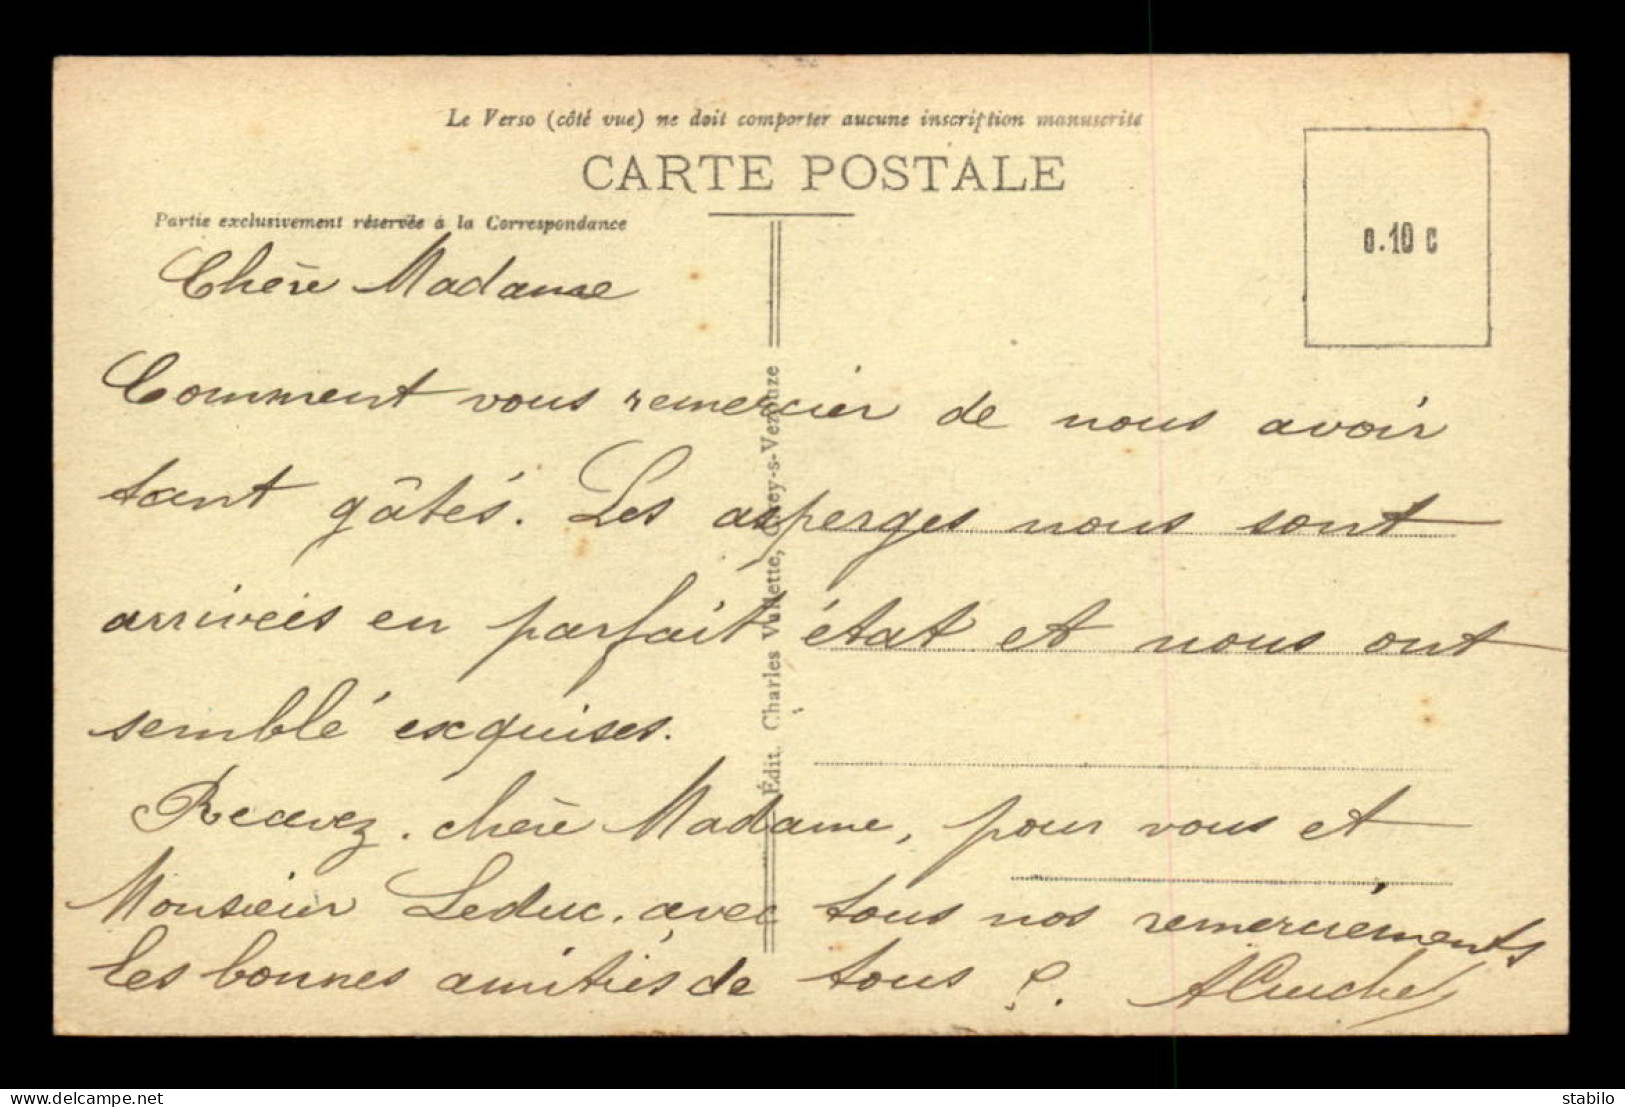 Le Verso (côté vue) ne doit comporter aucune inscription manuscrite
CARTE POSTALE
Partie exclusivement réservée à la Correspondance
0.10 C
Chère Madame
Comment vous remercier de nous avoir
tant gâtés. Les asperges nous sont
arrivées en parfait état et nous ont
semblé exquises.
Recevez, chère Madame, pour vous et
Monsieur Leduc, avec tous nos remerciements
les bonnes amitiés de tous
Édit. Charles Vuillette, -s-Vezouze
delcampe.net
stabilo